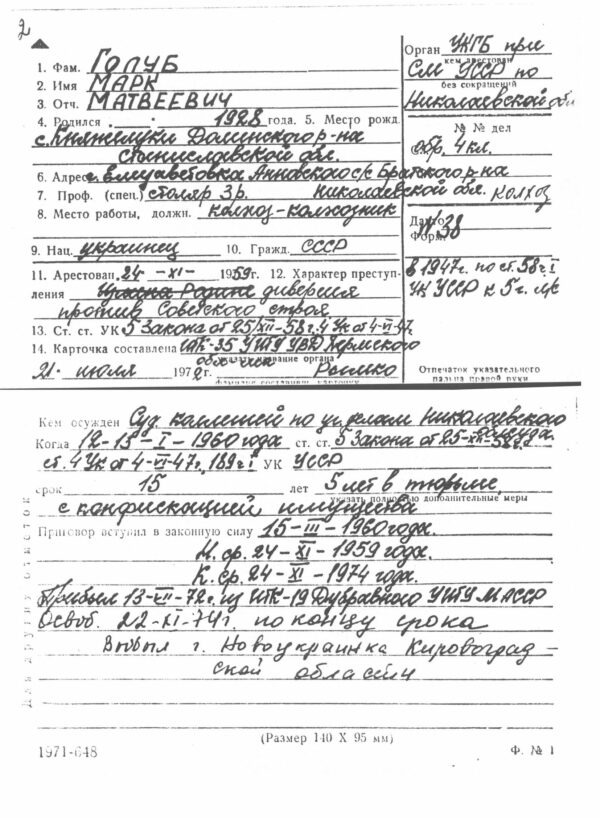 2
1. Фам. ГОЛУБ
2. Имя МАРК
3. Отч. МАТВЕЕВИЧ
4. Родился 1928 года. 5. Место рожд.
с. Княжелуки Долинского р-на
Станиславской обл.
6. Адрес Елизаветовка Анновского с/с Братского р-на
7. Проф. (спец.) столяр 3р. Николаевской обл.
8. Место работы, должн. колхоз-колхозник
9. Нац. украинец 10. Гражд. СССР
11. Арестован 24 -XI- 1959г. 12. Характер преступ-
ления диверсия
против Советского строя
13. Ст. ст. УК 5 Закона от 25/XII-58г. 4 Ук от 4-VI-47
14. Карточка составлена ИТК-35 УИТУ УВД Пермского
указать название органа
21 июля 1972г.
фамилия составив. карточку
Орган УКГБ при
кем арестован
СМ УССР по
без сокращений
Николаевской обл
№ № дел
обр. 4 кл.
колхоз
Форм.
N38
в 1947г. по ст. 58 г. I
УК УССР к 5 г.
Отпечаток указательного
пальца правой руки
Кем осужден Суд. коллегией по уг. делам Николаевского
облсуда
Когда 12-15-I-1960 года ст. ст. 5 Закона от 25-XII-58г.
ст. 4 Ук от 4-VI-47г., 189 г. I УК УССР
срок 15 лет 5 лет в тюрьме,
указать полностью дополнительные меры
с конфискацией имущества
Приговор вступил в законную силу 15-III-1960 года.
Н. ср. 24-XI-1959 года.
К. ср. 24-XI-1974 года.
Прибыл 13-VII-72г. из ИТК-19 Дубравного УИТУ МАССР
Освоб. 22-XI-74г. по концу срока
г. Новоукраинка Кировоград-
ской области
Для других отметок
(Размер 140 X 95 мм)
1971-648
Ф. № 1